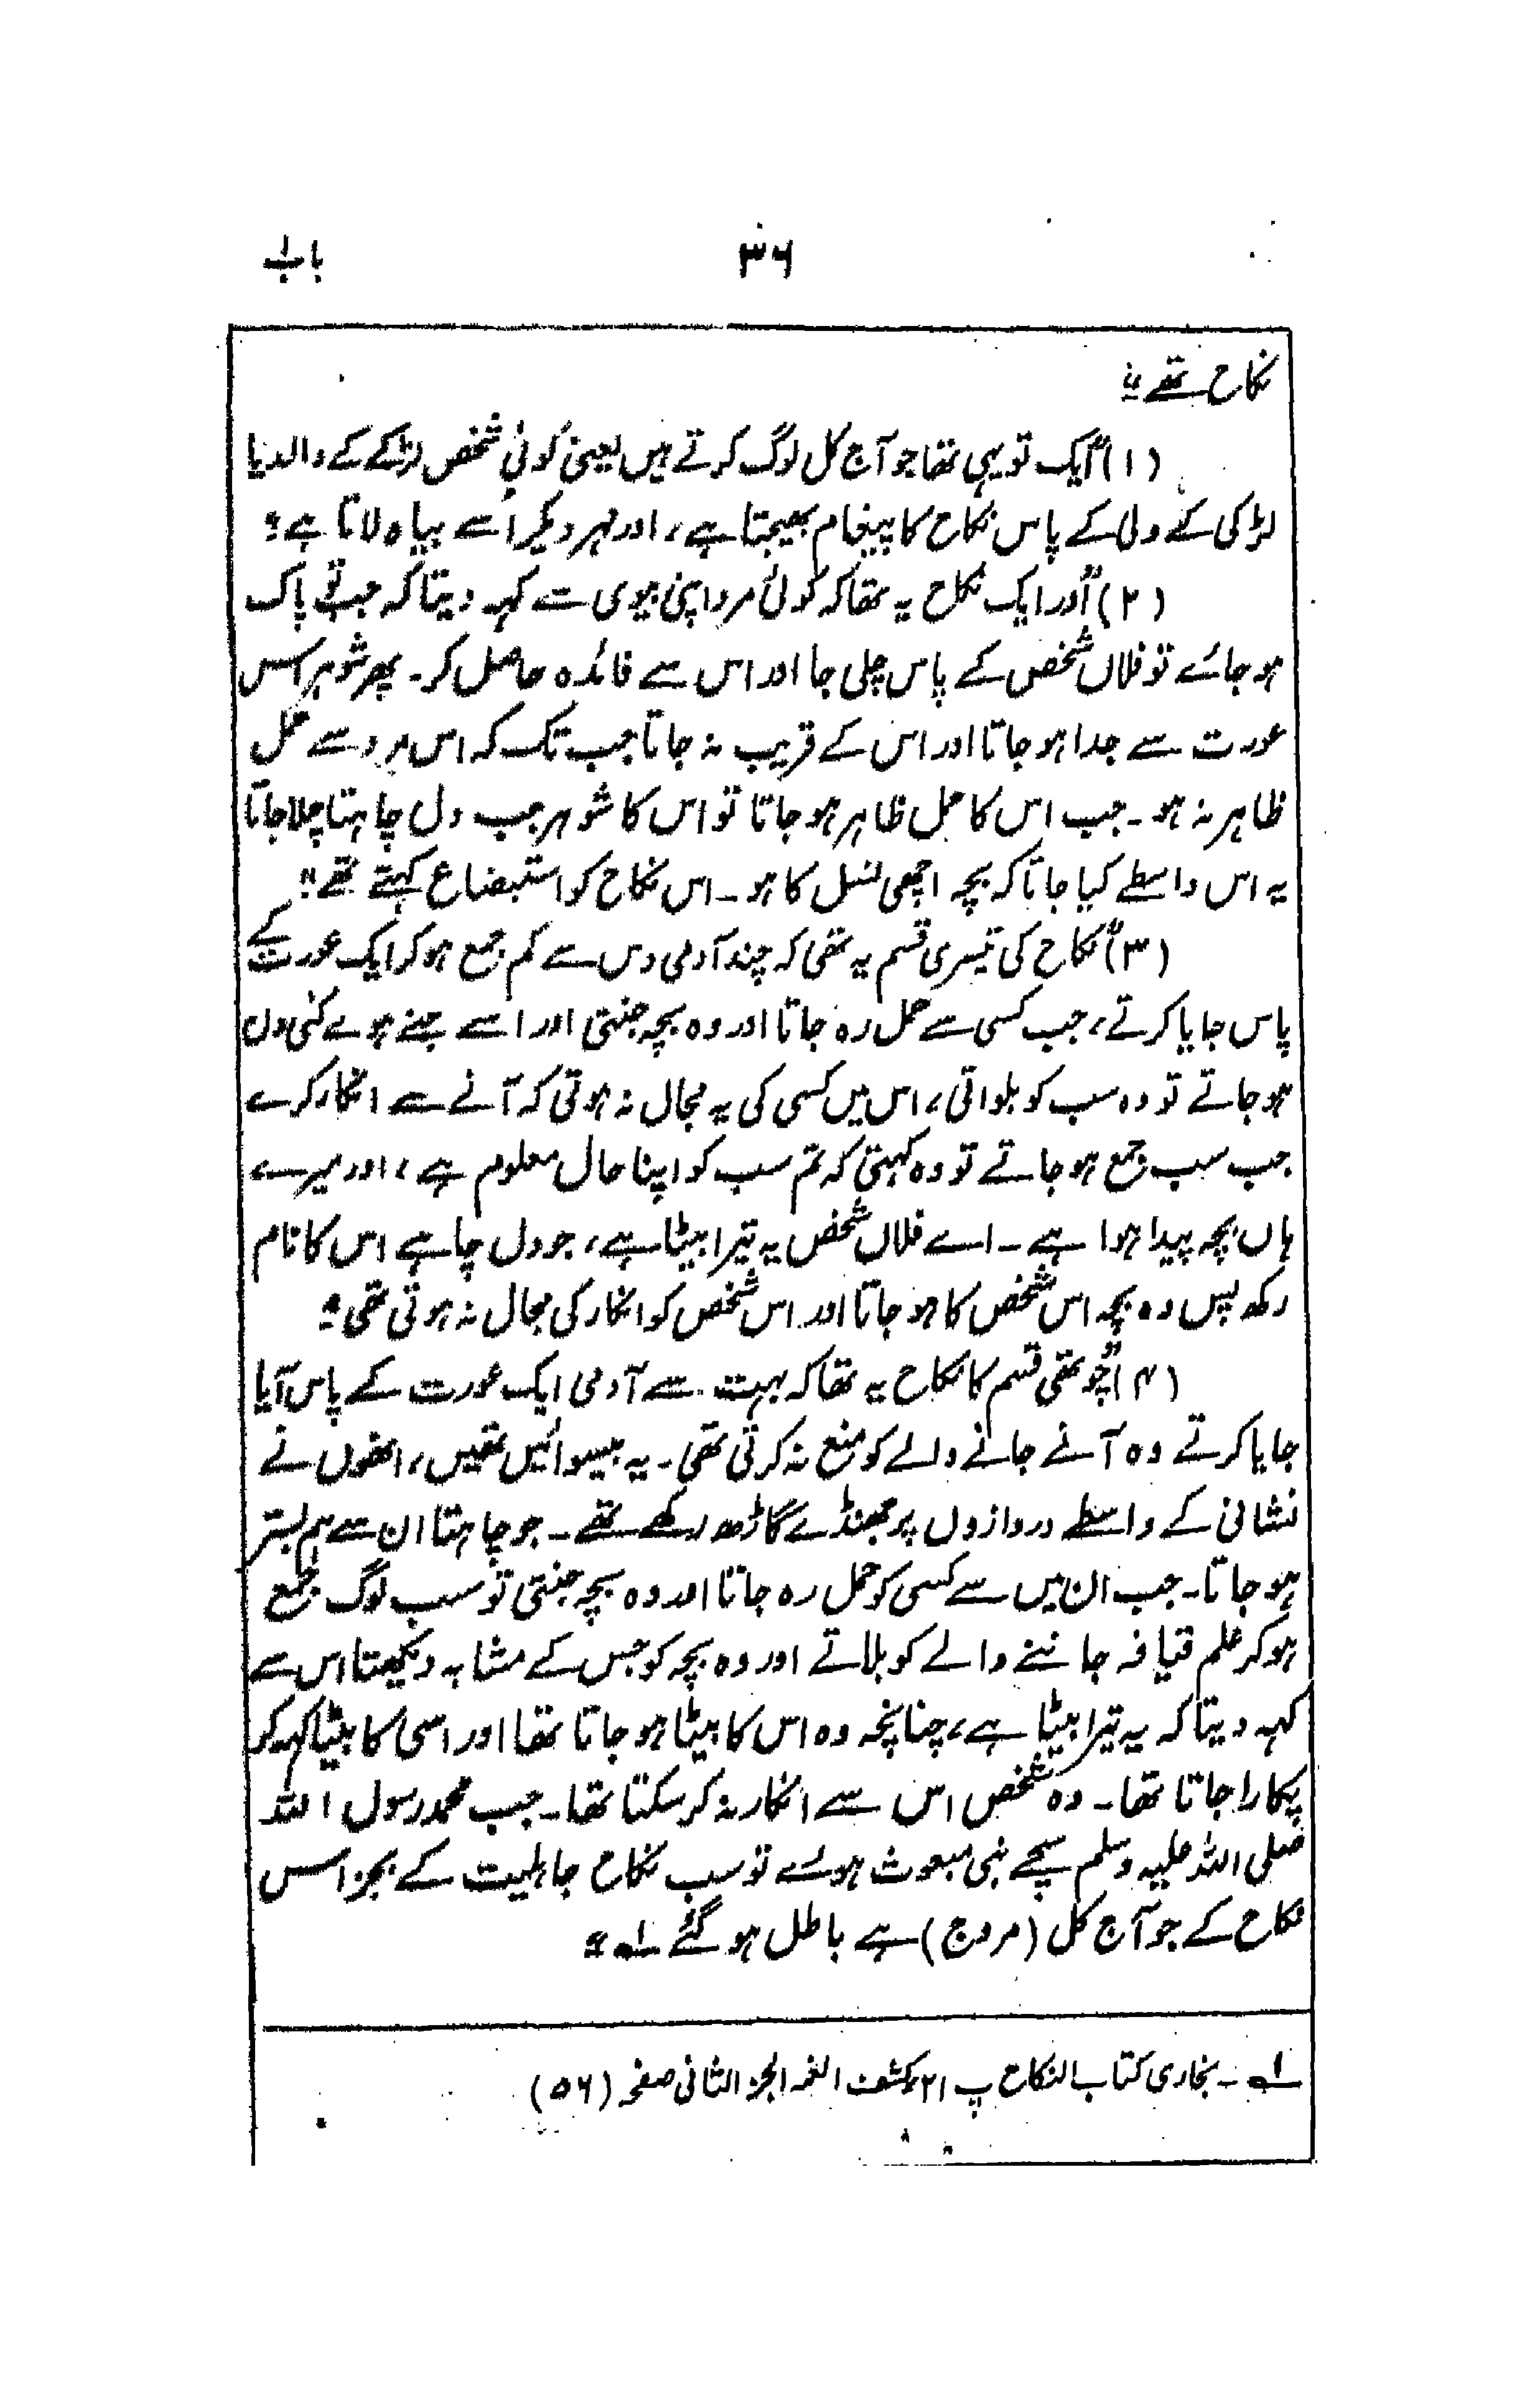 باب ۱
۳۶
نکاح تھے"
(۱) "ایک تو یہی تھا جو آج کل لوگ کرتے ہیں یعنی کوئی شخص لڑکے کے والد یا
لڑکی کے ولی کے پاس نکاح کا پیغام بھیجتا ہے، اور مہر دیکر اُسے بیاہ لاتا ہے"
(۲) "اور ایک نکاح یہ تھا کہ کوئی مرد اپنی بیوی سے کہہ دیتا کہ جب تو پاک
ہو جائے تو فلاں شخص کے پاس چلی جا اور اس سے فائدہ حاصل کر۔ پھر شوہر اس
عورت سے جدا ہو جاتا اور اس کے قریب نہ جاتا جب تک کہ اس مرد سے حمل
ظاہر نہ ہو۔ جب اس کا حمل ظاہر ہو جاتا تو اس کا شوہر جب دل چاہتا چلا جاتا
یہ اس واسطے کیا جاتا کہ بچہ اچھی نسل کا ہو۔ اس نکاح کو استبضاع کہتے تھے"
(۳) "نکاح کی تیسری قسم یہ تھی کہ چند آدمی دس سے کم جمع ہو کر ایک عورت کے
پاس جایا کرتے، جب کسی سے حمل رہ جاتا اور وہ بچہ جنتی اور اسے جنے ہوے کئی دن
ہو جاتے تو وہ سب کو بلواتی، اس میں کسی کی یہ مجال نہ ہوتی کہ آنے سے انکار کرے
جب سب جمع ہو جاتے تو وہ کہتی کہ تم سب کو اپنا حال معلوم ہے، اور میرے
ہاں بچہ پیدا ہوا ہے۔ اے فلاں شخص یہ تیرا بیٹا ہے، جو دل چاہے اس کا نام
رکھ پس وہ بچہ اس شخص کا ہو جاتا اور اس شخص کو انکار کی مجال نہ ہوتی تھی"
(۴) "چوتھی قسم کا نکاح یہ تھا کہ بہت سے آدمی ایک عورت کے پاس آیا
جایا کرتے وہ آنے جانے والے کو منع نہ کرتی تھی۔ یہ بیسوائیں تھیں، انھوں نے
نشانی کے واسطے دروازوں پر جھنڈے گاڑھ رکھے تھے۔ جو چاہتا ان سے ہم بستر
ہو جاتا۔ جب ان میں سے کسی کو حمل رہ جاتا اور وہ بچہ جنتی تو سب لوگ جمع
ہو کر علم قیافہ جاننے والے کو بلاتے اور وہ بچہ کو جس کے مشابہ دیکھتا اس سے
کہہ دیتا کہ یہ تیرا بیٹا ہے، چنانچہ وہ اس کا بیٹا ہو جاتا تھا اور اسی کا بیٹا کہہ کر
پکارا جاتا تھا۔ وہ شخص اس سے انکار نہ کر سکتا تھا۔ جب محمد رسول اللہ
صلی اللہ علیہ وسلم سچے نبی مبعوث ہوئے تو سب نکاح جاہلیت کے بجز اس
نکاح کے جو آج کل (مروج) ہے باطل ہو گئے ۱؎"
۱؎۔ بخاری کتاب النکاح پ ۲۱، کشف الغمہ الجز الثانی صفحہ (۵۶)